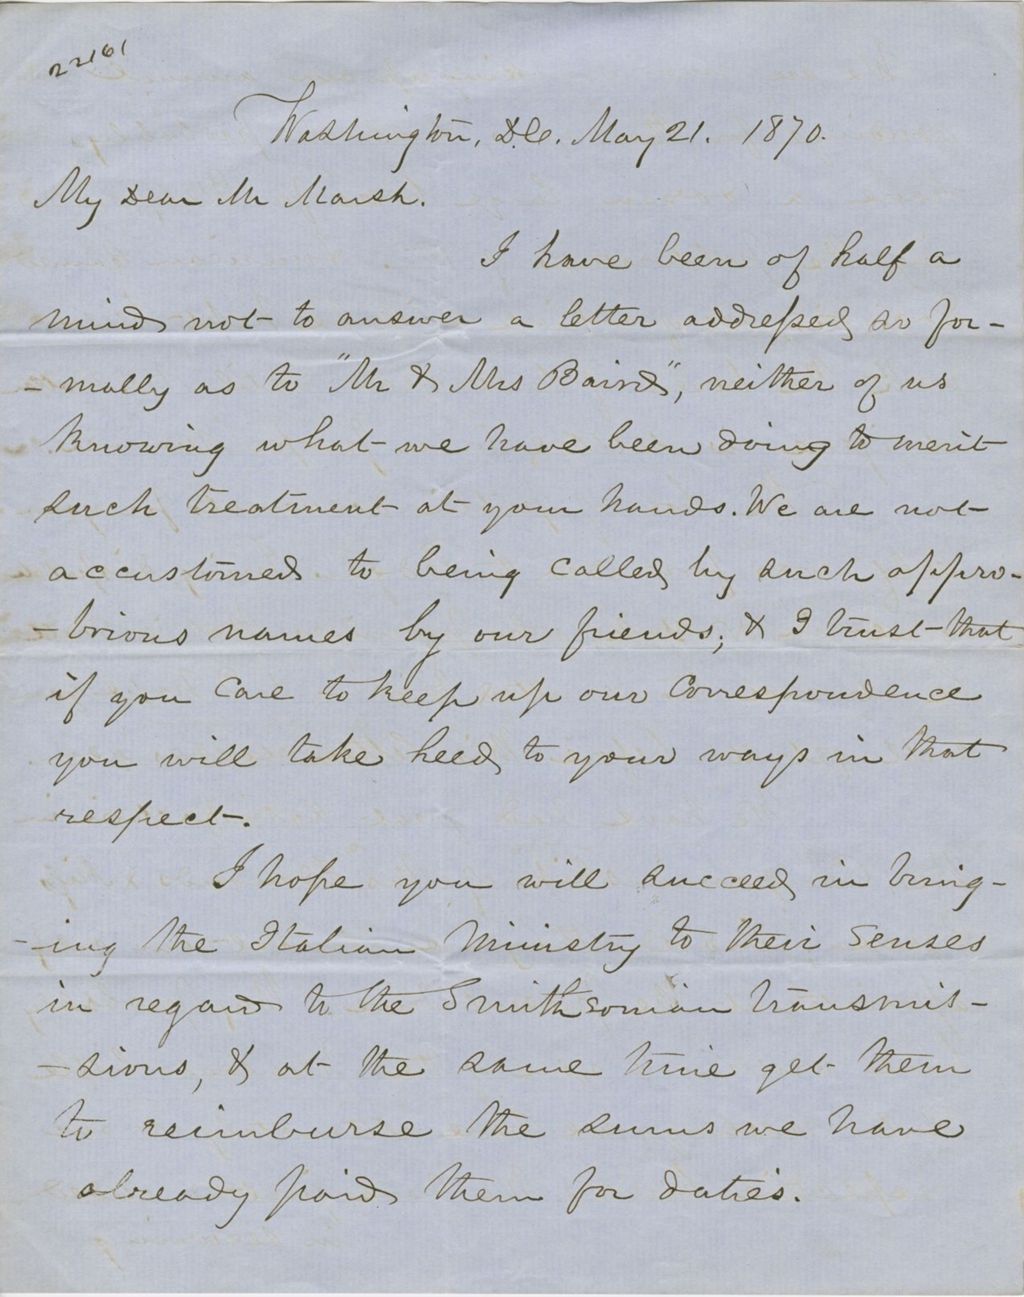 22161
Washington, D.C. May 21. 1870.
My Dear Mr Marsh.
I have been of half a
mind not to answer a letter addressed so for-
-mally as to "Mr & Mrs Baird", neither of us
knowing what we have been doing to merit
such treatment at your hands. We are not
accustomed to being called by such oppro-
-brious names by our friends; & I trust that
if you care to keep up our correspondence
you will take heed to your ways in that
respect.
I hope you will succeed in bring-
-ing the Italian Ministry to their senses
in regard to the Smithsonian transmis-
-sions, & at the same time get them
to reimburse the sums we have
already paid them for duties.